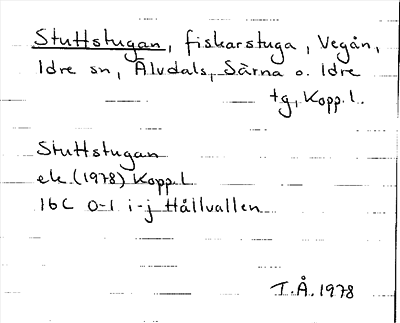 Stuttstugan, fiskarstuga, Vegån,
Idre sn, Älvdals, Särna o. Idre
tg, Kopp. l.
Stuttstugan
ek (1978) Kopp. l
16C 0-1 i-j Hållvallen
I.Å. 1978